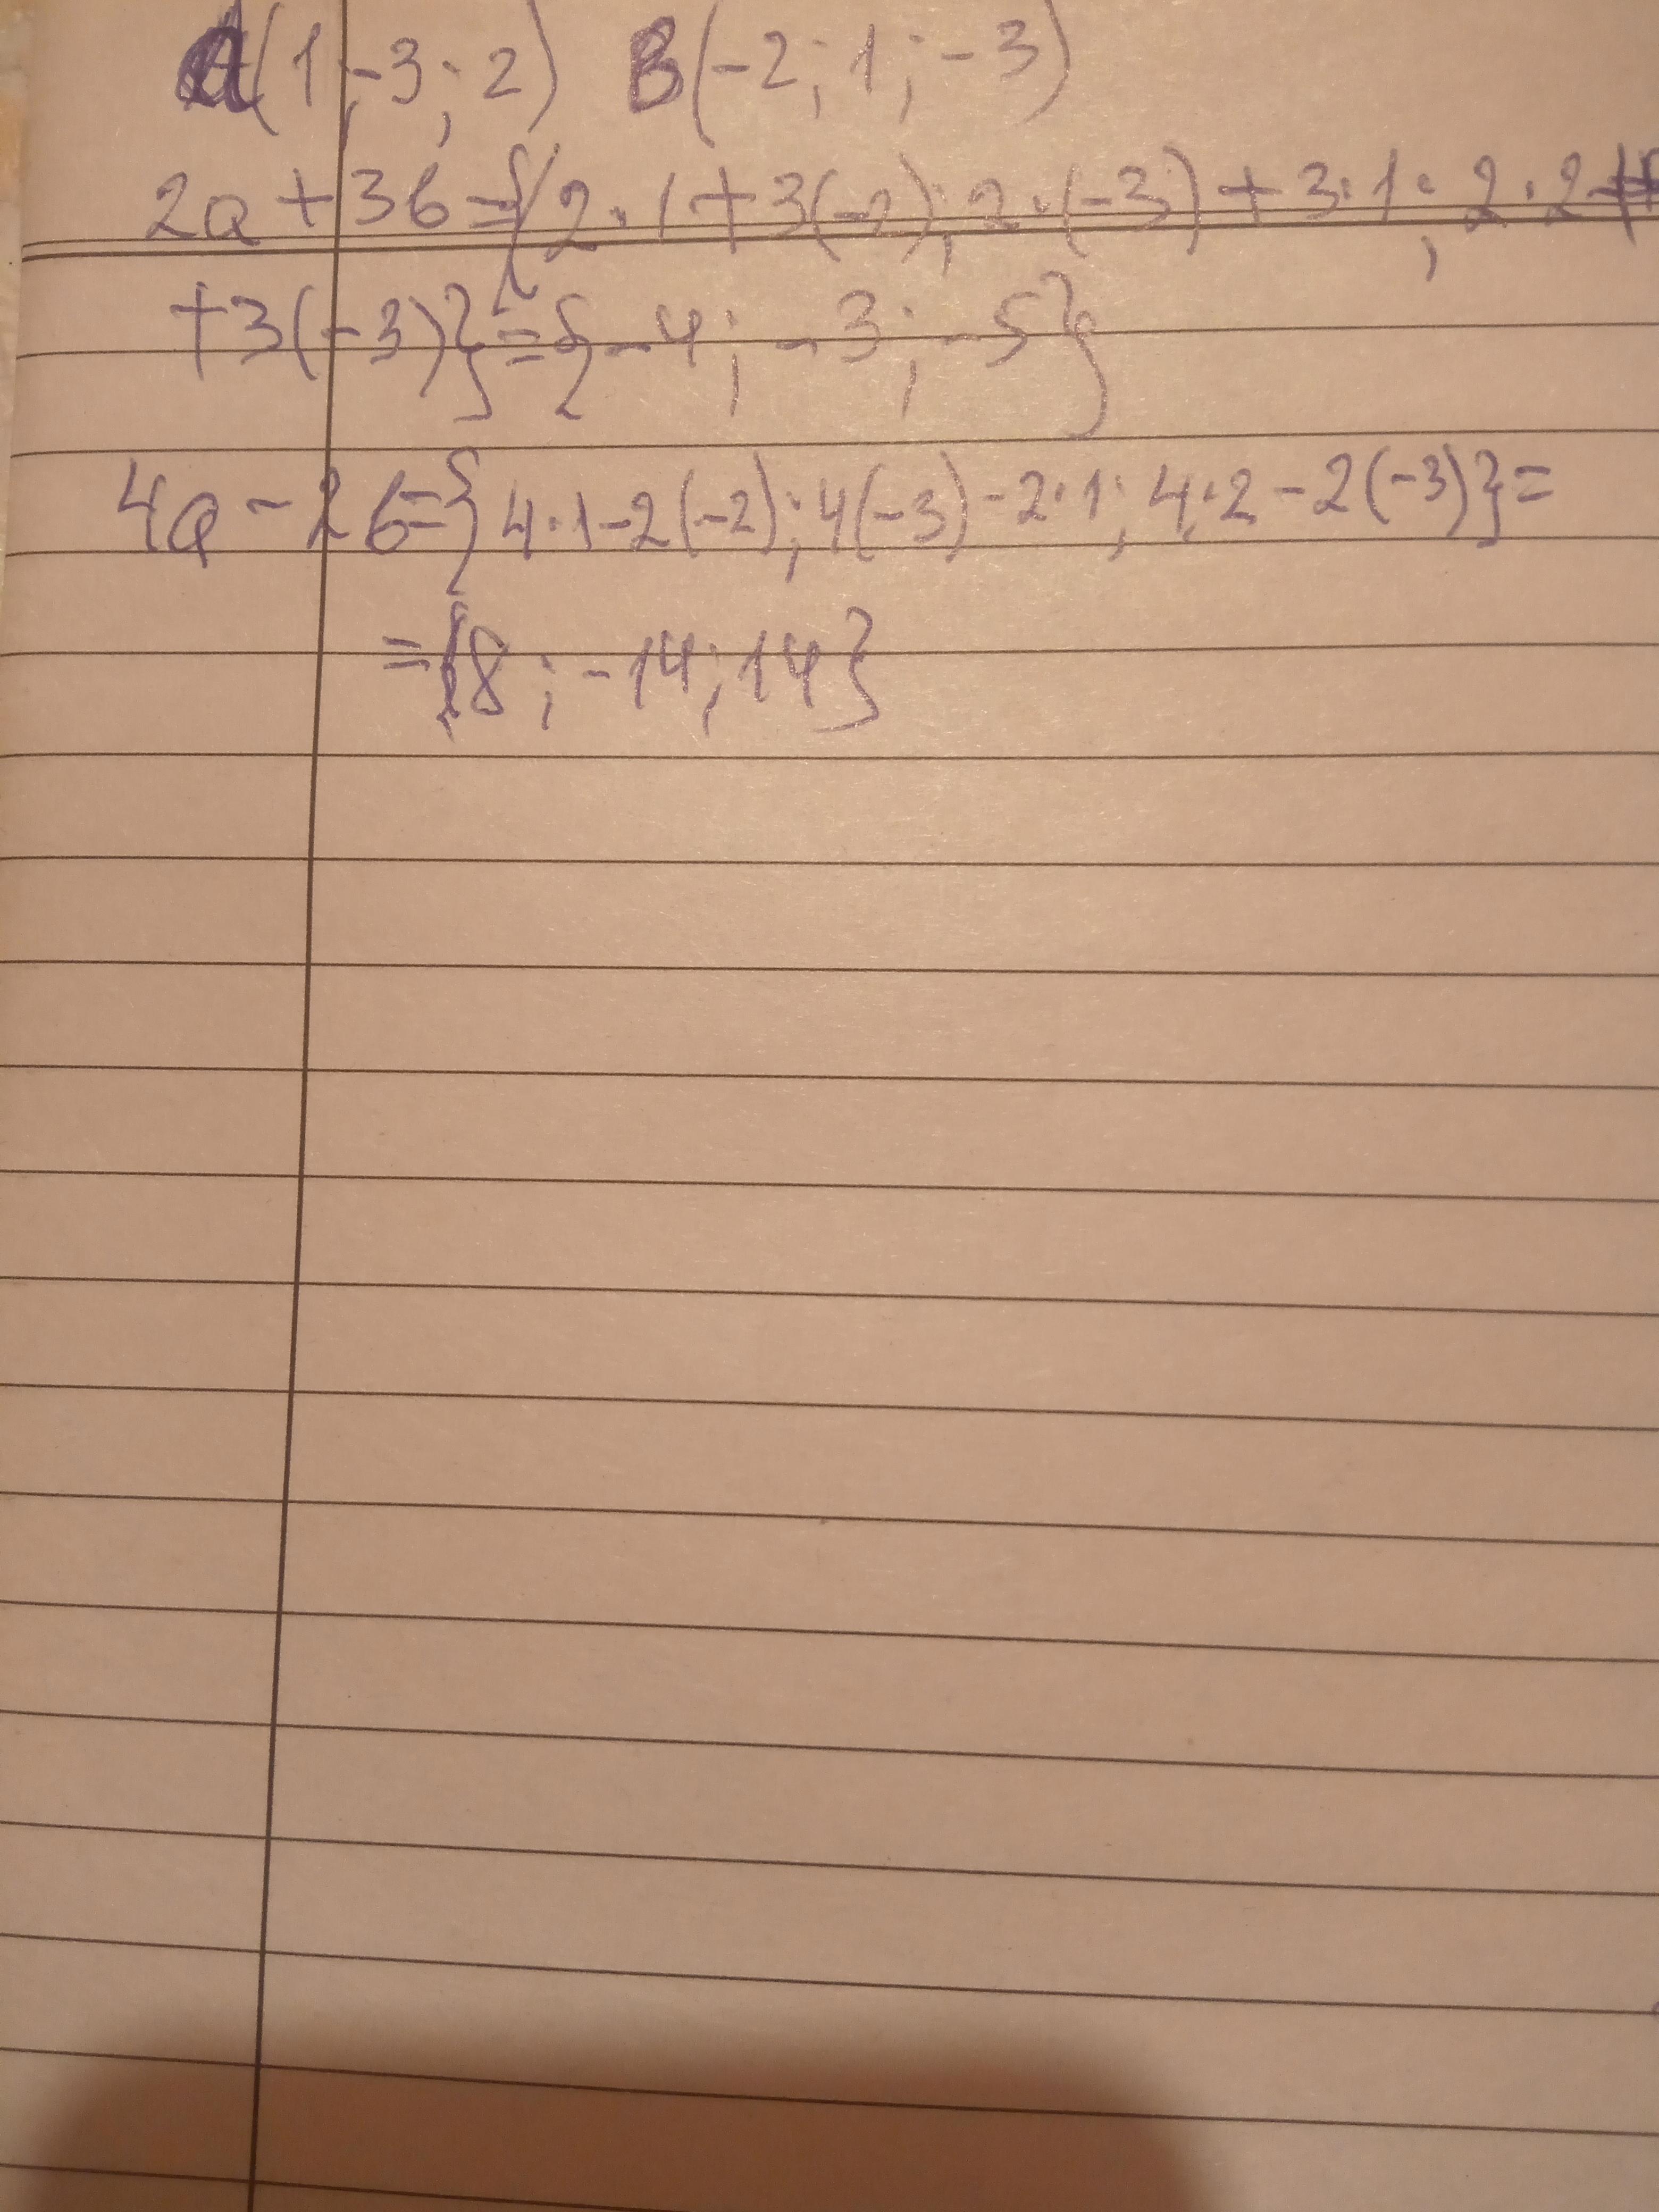 a(1;-3;2) B(-2;1;-3)
2a+3б={2·1+3(-2);2·(-3)+3·1;2·2+
+3(-3)}={-4;-3;-5}
4a-2б={4·1-2(-2);4(-3)-2·1;4·2-2(-3)}=
={8;-14;14}